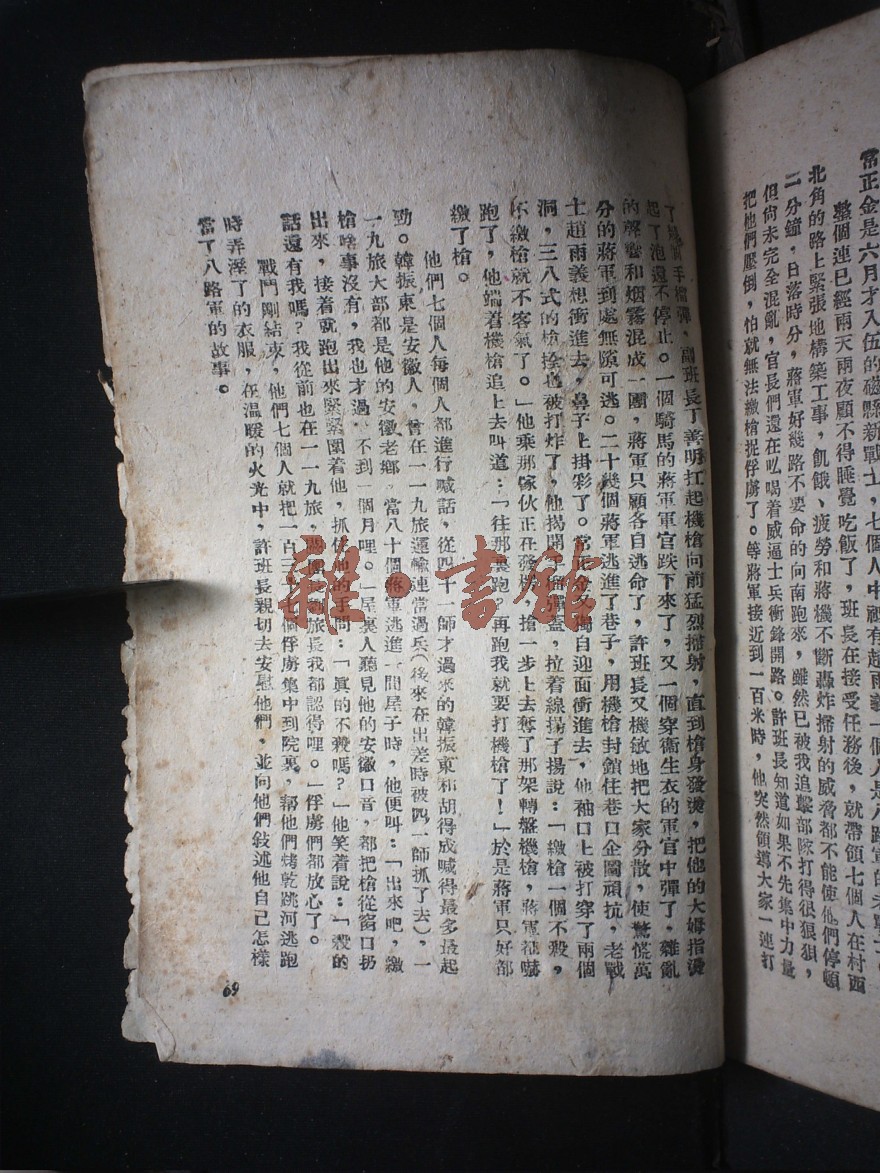 常正金是六月才入伍的磁縣新戰士，七個人中祇有趙雨義一個人是八路軍的老戰士
整個連已經兩天兩夜顧不得睡覺吃飯了，班長在接受任務後，就帶領七個人在村西
北角的路上緊張地構築工事，飢餓、疲勞和蔣機不斷轟炸掃射的威脅都不能使他們停頓
二分鐘，日落時分，蔣軍好幾路不要命的向南跑來，雖然已被我追擊部隊打得很狼狽，
但尚未完全混亂，官長們還在吆喝着威逼士兵衝鋒開路。許班長知道如果不先集中力量
把他們壓倒，怕就無法繳槍捉俘虜了。等蔣軍接近到一百米時，他突然領導大家一連打
了 手榴彈，副班長丁善明扛起機槍向前猛烈掃射，直到槍身發燙，把他的大姆指燙
起了泡還不停止。一個騎馬的蔣軍軍官跌下來了，又一個穿衞生衣的軍官中彈了，雜亂
的聲響和烟霧混成一團，蔣軍只顧各自逃命了，許班長又機敏地把大家分散，使驚慌萬
分的蔣軍到處無隙可逃。二十幾個蔣軍逃進了巷子，用機槍封鎖住巷口企圖頑抗，老戰
士趙雨義想衝進去，鼻子上掛彩了。常正金又獨自迎面衝進去，他袖口上被打穿了兩個
洞，三八式的槍拴也被打炸了，他揭開手榴彈蓋，拉着線揚子揚說：「繳槍一個不殺，
不繳槍就不客氣了。」他乘那傢伙正在發楞，搶一步上去奪了那架轉盤機槍，蔣軍都嚇
跑了，他端着機槍追上去叫道：「往那裏跑？再跑我就要打機槍了！」於是蔣軍只好都
繳了槍。
他們七個人每個人都進行喊話，從四十一師才過來的韓振東和胡得成喊得最多最起
勁。韓振東是安徽人，曾在一一九旅運輸連當過兵（後來在出差時被四一師抓了去），一
一九旅大部都是他的安徽老鄉。當八十個蔣軍逃進一間屋子時，他便叫：「出來吧，繳
槍啥事沒有，我也才過 不到一個月哩。」屋裏人聽見他的安徽口音，都把槍從窗口扔
出來，接着就跑出來緊緊圍着他，抓住他的手問：「眞的不殺嗎？」他笑着說：「殺的
話還有我嗎？我從前也在一一九旅， 團長 旅長我都認得哩。」俘虜們都放心了。
戰鬥剛結束，他們七個人就把一百三十七個俘虜集中到院裏，幫他們烤乾跳河逃跑
時弄溼了的衣服，在溫暖的火光中，許班長親切去安慰他們，並向他們敍述他自己怎樣
當了八路軍的故事。
69
雜·書館